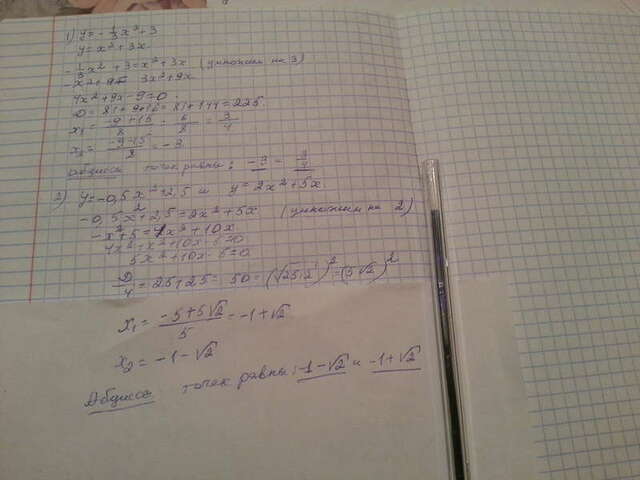 1) y = -1/3 x² + 3
y = x² + 3x
-1/3 x² + 3 = x² + 3x (умножим на 3)
-x² + 9 = 3x² + 9x
4x² + 9x - 9 = 0
D = 81 + 9·16 = 81 + 144 = 225
x₁ = (-9+15)/8 = 6/8 = 3/4
x₂ = (-9-15)/8 = -3
Абциссы точек равны: -3 3/4
2) y = -0,5x² + 2,5 и y = 2x² + 5x
-0,5x² + 2,5 = 2x² + 5x (умножим на 2)
-x² + 5 = 4x² + 10x
4x² + x² + 10x - 5 = 0
5x² + 10x - 5 = 0
D/4 = 25 + 25 = 50 = (√25·2)² = (5√2)²
x₁ = (-5+5√2)/5 = -1+√2
x₂ = -1-√2
Абциссы точек равны: -1-√2 и -1+√2